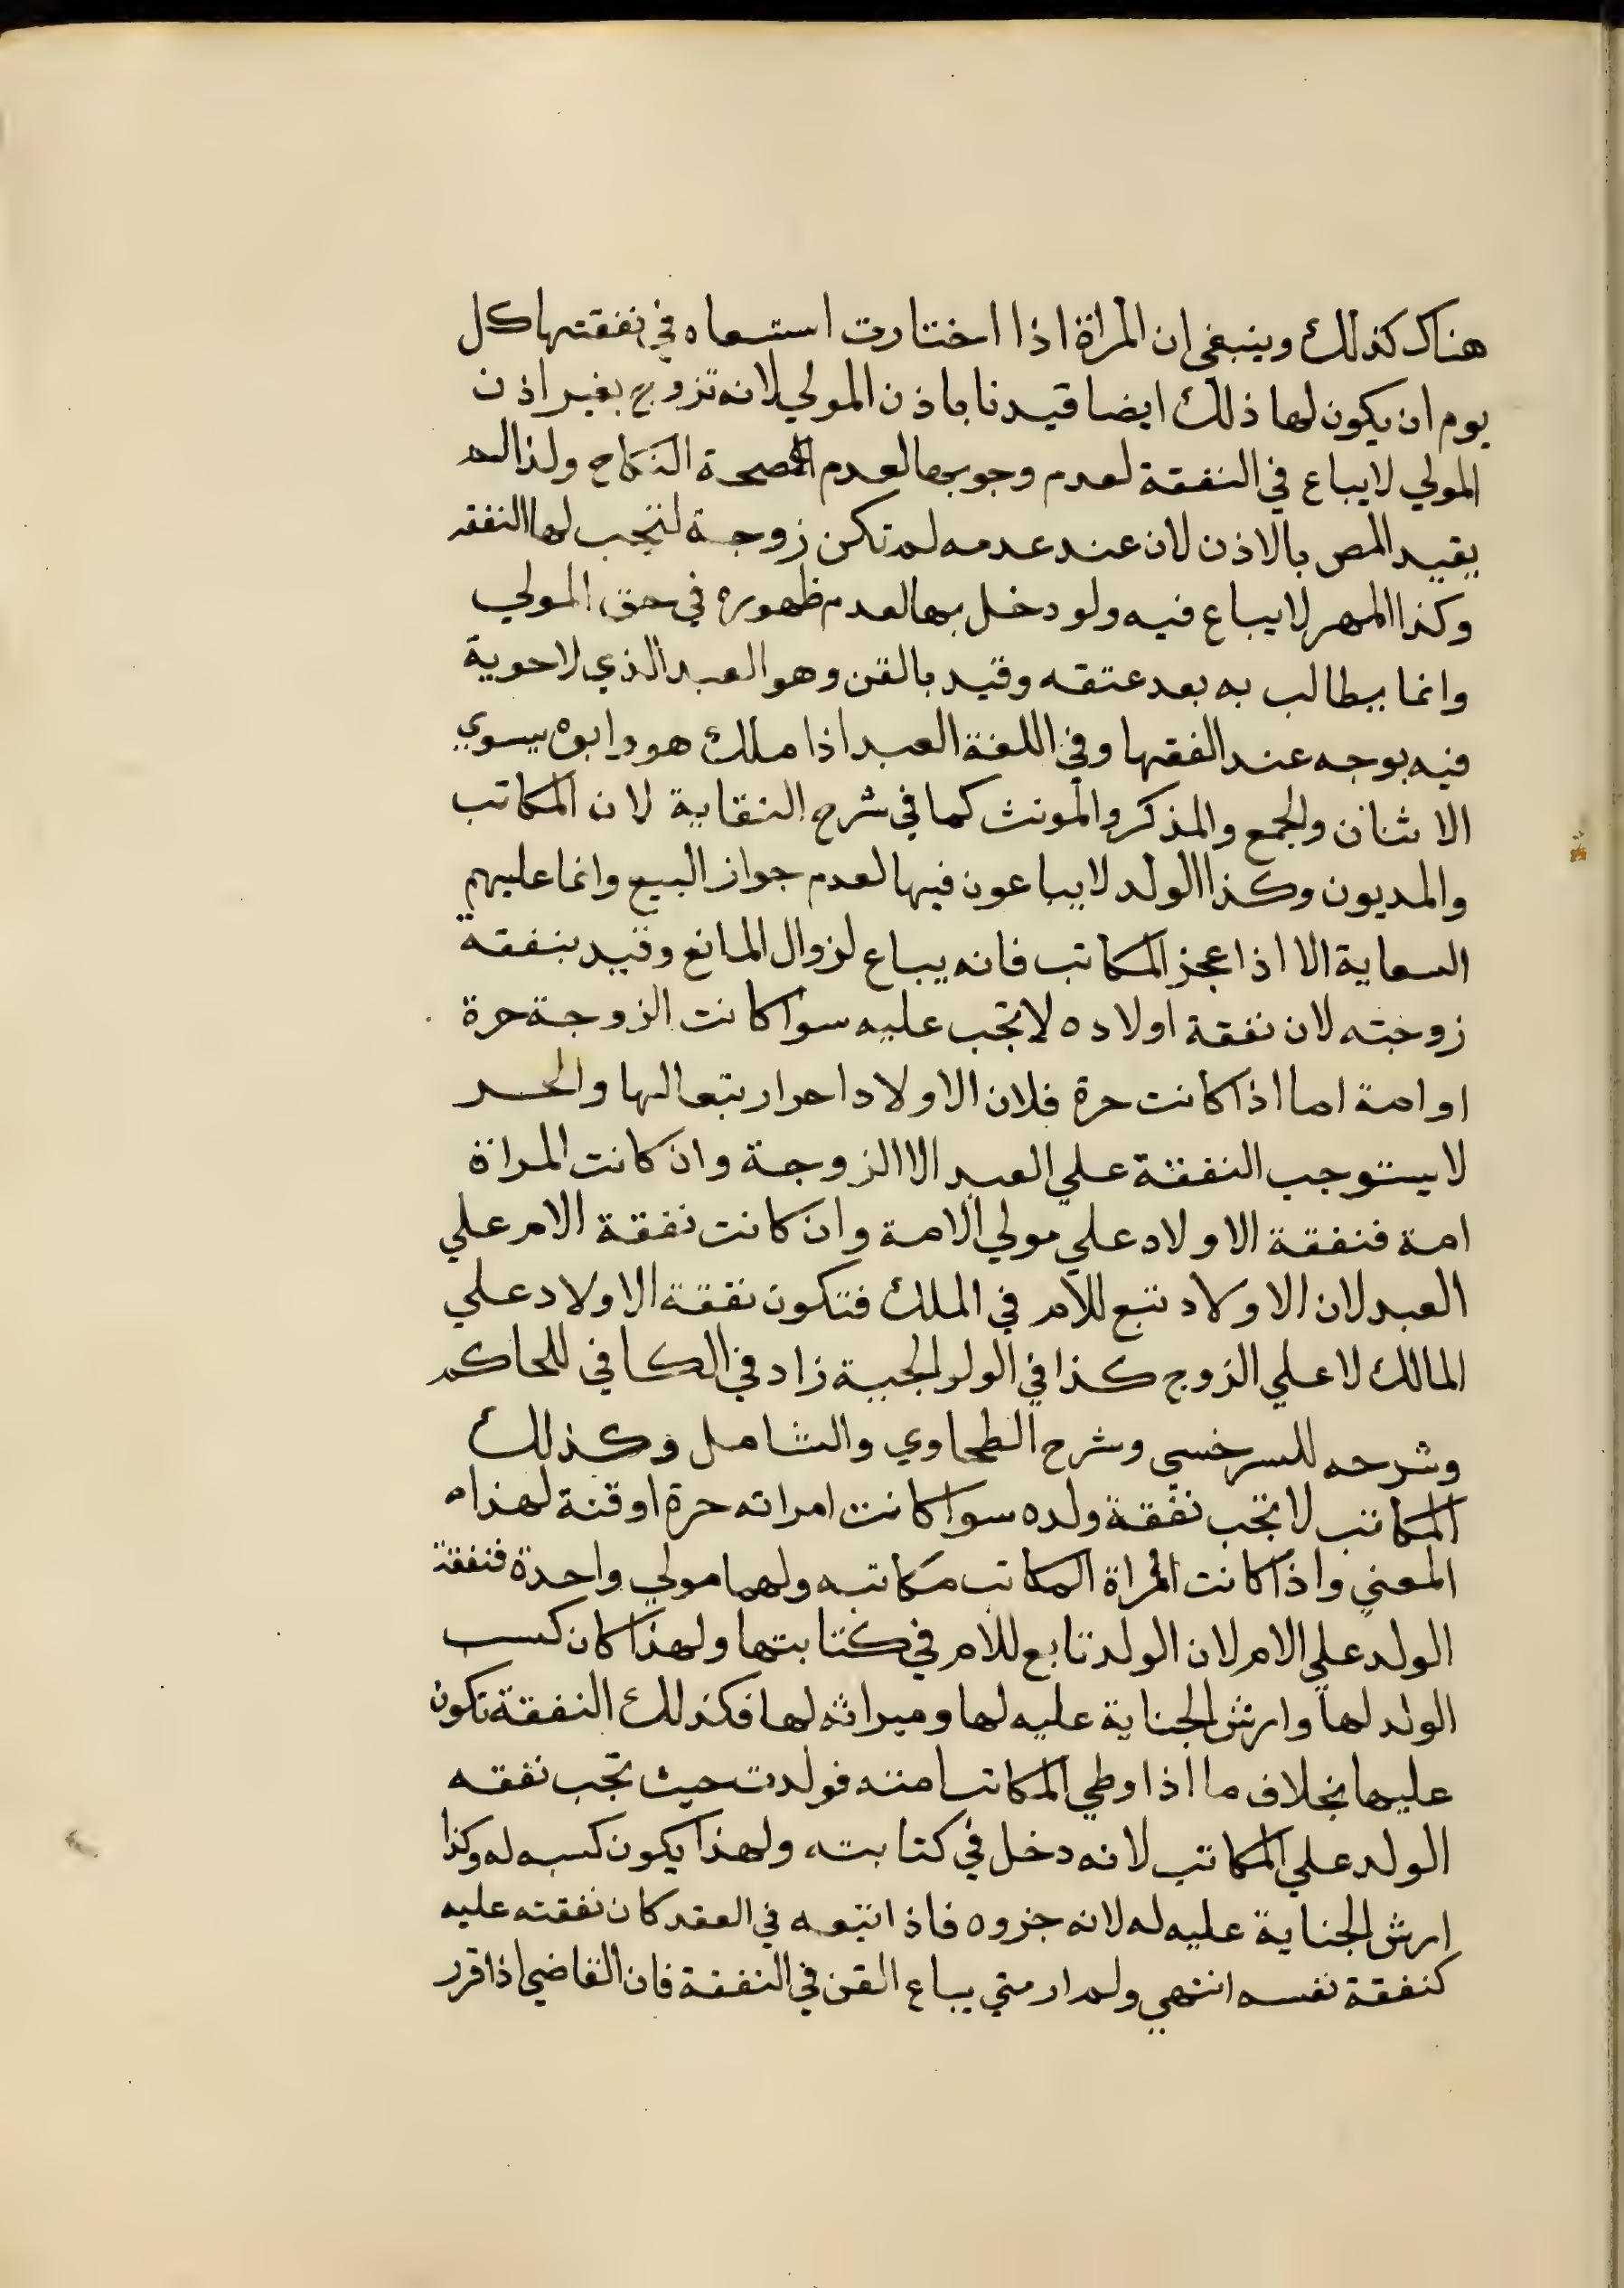 هناك كذلك وينبغي ان المراة اذا اختارت استسعاه في نفقتها كل
يوم ان يكون لها ذلك ايضا قيدنا باذن المولي لانه تزوج بغير اذن
المولي لا يباع في النفقة لعدم وجوبها لعدم صحة النكاح ولذا لم
يقيد المص بالاذن لان عند عدمه لم تكن زوجة لتجب لها النفقة
وكذا المهر لا يباع فيه ولو دخل بها لعدم ظهوره في حق المولي
وانما يطالب به بعد عتقه وقيد بالقن وهو العبد الذي لا حرية
فيه بوجه عند الفقها وفي اللغة العبد اذا ملك هو وابوه يسوي
الاثنان والجمع والمذكر والمونث كما في شرح النقاية لان المكاتب
والمديون وكذا الولد لا يباعون فيها لعدم جواز البيع وانما عليهم
السعاية الا اذا عجز المكاتب فانه يباع لزوال المانع وقيد بنفقة
زوجته لان نفقة اولاده لا تجب عليه سوا كانت الزوجة حرة
او امة اما اذا كانت حرة فلان الاولاد احرار تبعا لها والحر
لا يستوجب النفقة علي العبد الا الزوجة وان كانت المراة
امة فنفقة الاولاد علي مولي الامة وان كانت نفقة الام علي
العبد لان الاولاد تبع للام في الملك فتكون نفقة الاولاد علي
المالك لا علي الزوج كذا في الولوالجية زاد في الكافي للحاكم
وشرحه للسرخسي وشرح الطحاوي والشامل وكذلك
المكاتب لا تجب نفقة ولده سوا كانت امراته حرة او قنة لهذا
المعني واذا كانت المراة المكاتب مكاتبه ولهما مولي واحدة فنفقة
الولد علي الام لان الولد تابع للام في كتابتها ولهذا كان كسب
الولد لها وارش الجناية عليه لها وميراثه لها فكذلك النفقة تكون
عليها بخلاف ما اذا وطي المكاتب امته فولدت حيث تجب نفقه
الولد علي المكاتب لانه دخل في كتابته ولهذا يكون كسبه له وكذا
ارش الجناية عليه له لانه جزوه فاذا اتبعه في العقد كان نفقته عليه
كنفقة نفسه انتهي ولم ار متي يباع القن في النفقة فان القاضي اذا قرر